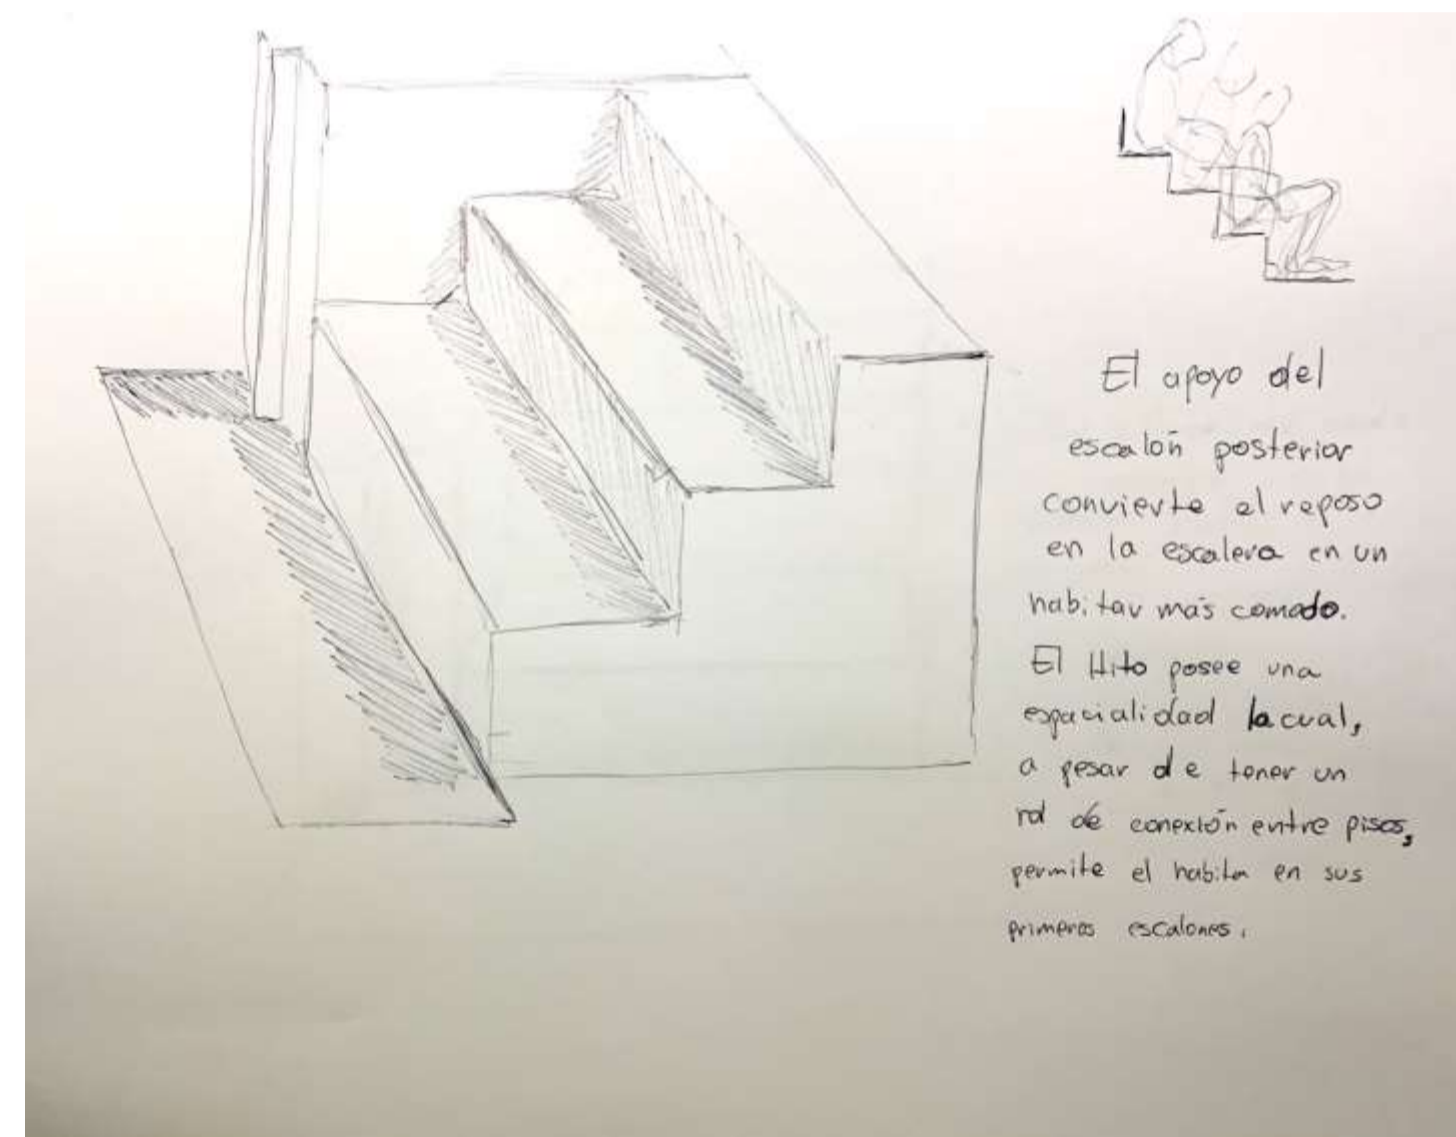 El apoyo del
escalón posterior
convierte el reposo
en la escalera en un
habitar más comodo.
El Hito posee una
espacialidad la cual,
a pesar de tener un
rol de conexión entre pisos,
permite el habitar en sus
primeros escalones.